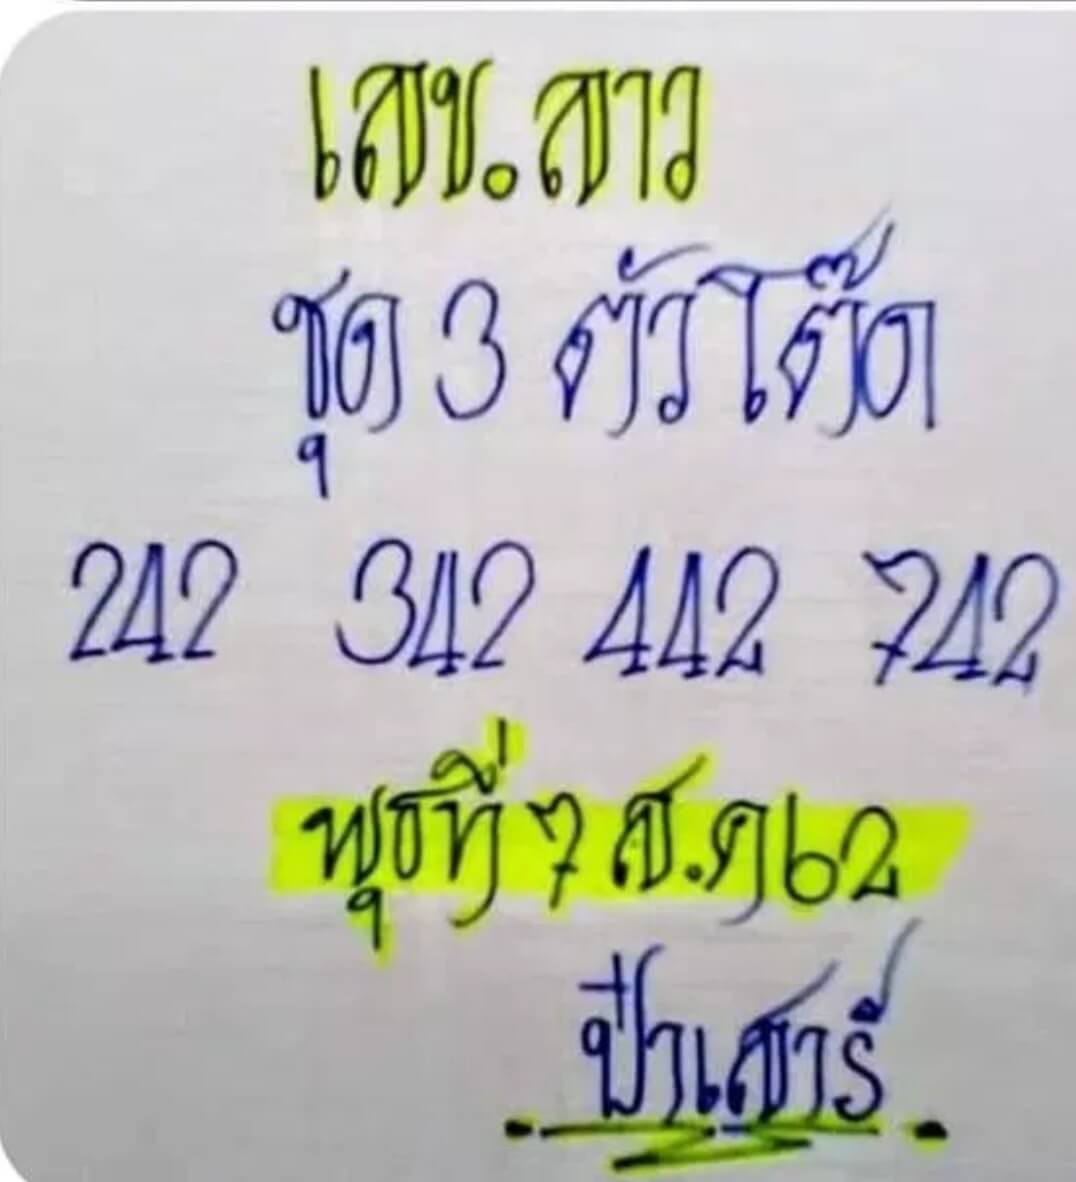 เลข.ลาว
ชุด 3 ตัวโต๊ด
242 342 442 742
พุธที่ 7 ส.ค 62
ป๋าเสารี